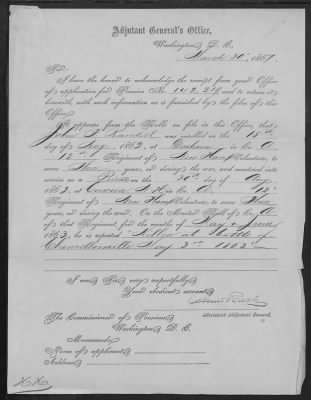 Adjutant General's Office,
Washington, D. C.
March 30", 1867
Sir:
I have the honor to acknowledge the receipt from your Office
of application for Pension No. 142.279, and to return it
herewith, with such information as is furnished by the files of this
Office.
It appears from the Rolls on file in this Office, that
John B. was enrolled on the 15th
day of Aug, 1862, at Durham in Co. A
12th Regiment of New Hamp Volunteers, to
serve Three years, or during the war, and mustered into
service as a Private on the 30th day of Aug,
1862, at Concord N.H. in Co. A 12"
Regiment of New Hamp Volunteers, to serve Three
years, or during the war. On the Muster Roll of Co. A
of that Regiment for the months of May & June
1863, he is reported "Killed at battle of
Chancellorsville May 3rd 1863"
I am, Sir, very respectfully,
Your obedient servant,
Assistant Adjutant General.
The Commissioner of Pensions,
Washington, D. C.
Memoranda:
Name of applicant
Address